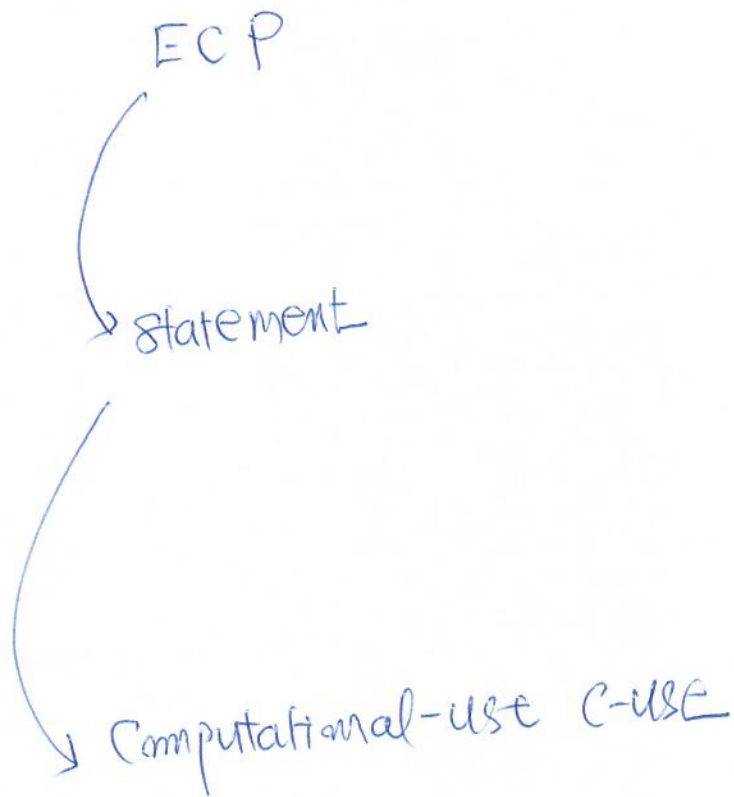 ECP
statement
Computational-use C-use